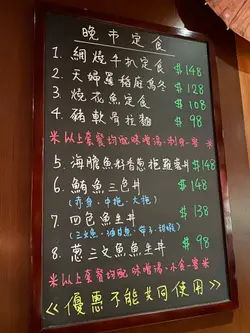 晚市定食
1. 網燒牛扒定食 $148
2. 天婦羅稻庭烏冬 $128
3. 燒花魚定食 $108
4. 豬軟骨拉麵 $98
米以上套餐均配味噌湯,
5. 海膽魚料香蔥拖羅蓉丼 $148
6. 鮪魚三色丼 $148
(赤身·中拖·大拖)
7. 四色魚生丼 $138
(三文魚·油甘魚·帶子·
8. 蔥三文魚魚生丼 $98
米以上套餐均配味噌湯·小食一客米
<<優惠不能共同使用>>